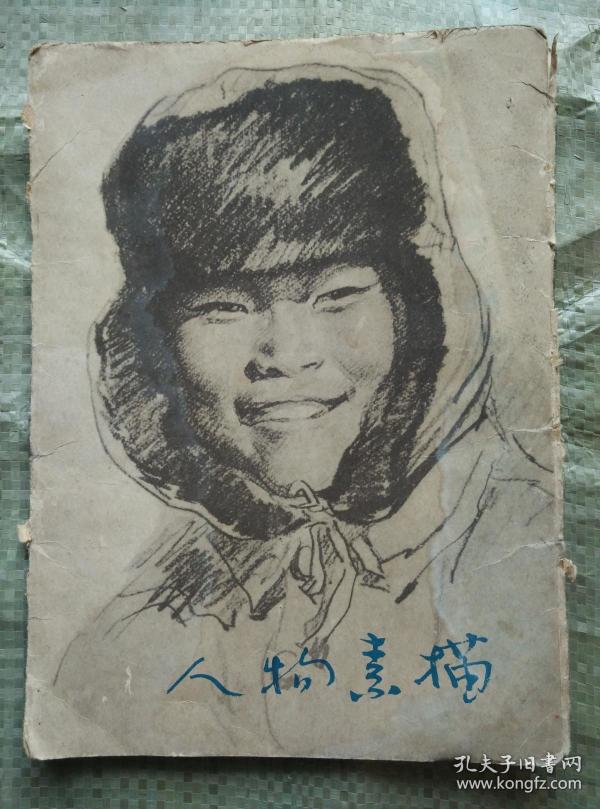 人物素描
孔夫子旧书网
www.kongfz.com